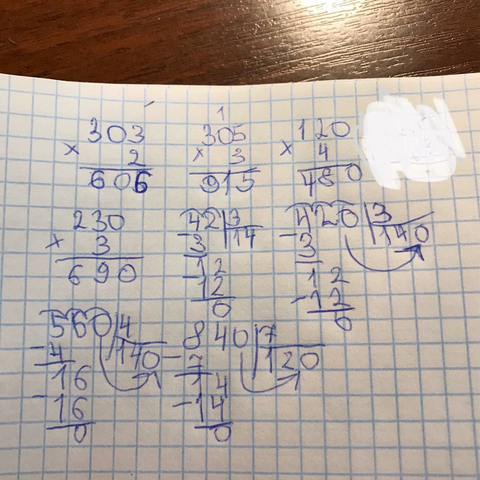 303 × 2 606
1 305 × 3 915
120 × 4 480
230 × 3 690
42 | 3 14 - 3 12 - 12 0
420 | 3 140 - 3 12 - 12 0
560 | 4 140 - 4 16 - 16 0
840 | 7 120 - 7 14 - 14 0